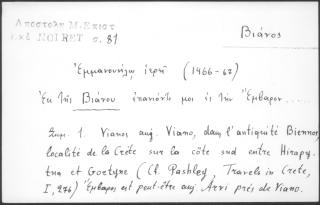 Αποστολη Μ. Επιστ
εκδ NOIRET σ. 81
Βιάνος
Ἐμμανουήλῳ ἱερῆ (1466-67)
Ἐκ τῆς Βιάνου ἐπανιόντι μοι εἰς τὴν Ἔμβαρον.....
Σημ. 1. Vianos auj. Viano, dans l'antiquité Biennos,
localité de la Crète sur la côte sud entre Hierapy.
tna et Goetyne (Ch. Pashley, Travels in Crete,
I, 276) Ἔμβαρος est peut-être auj. Arvi près de Viano.